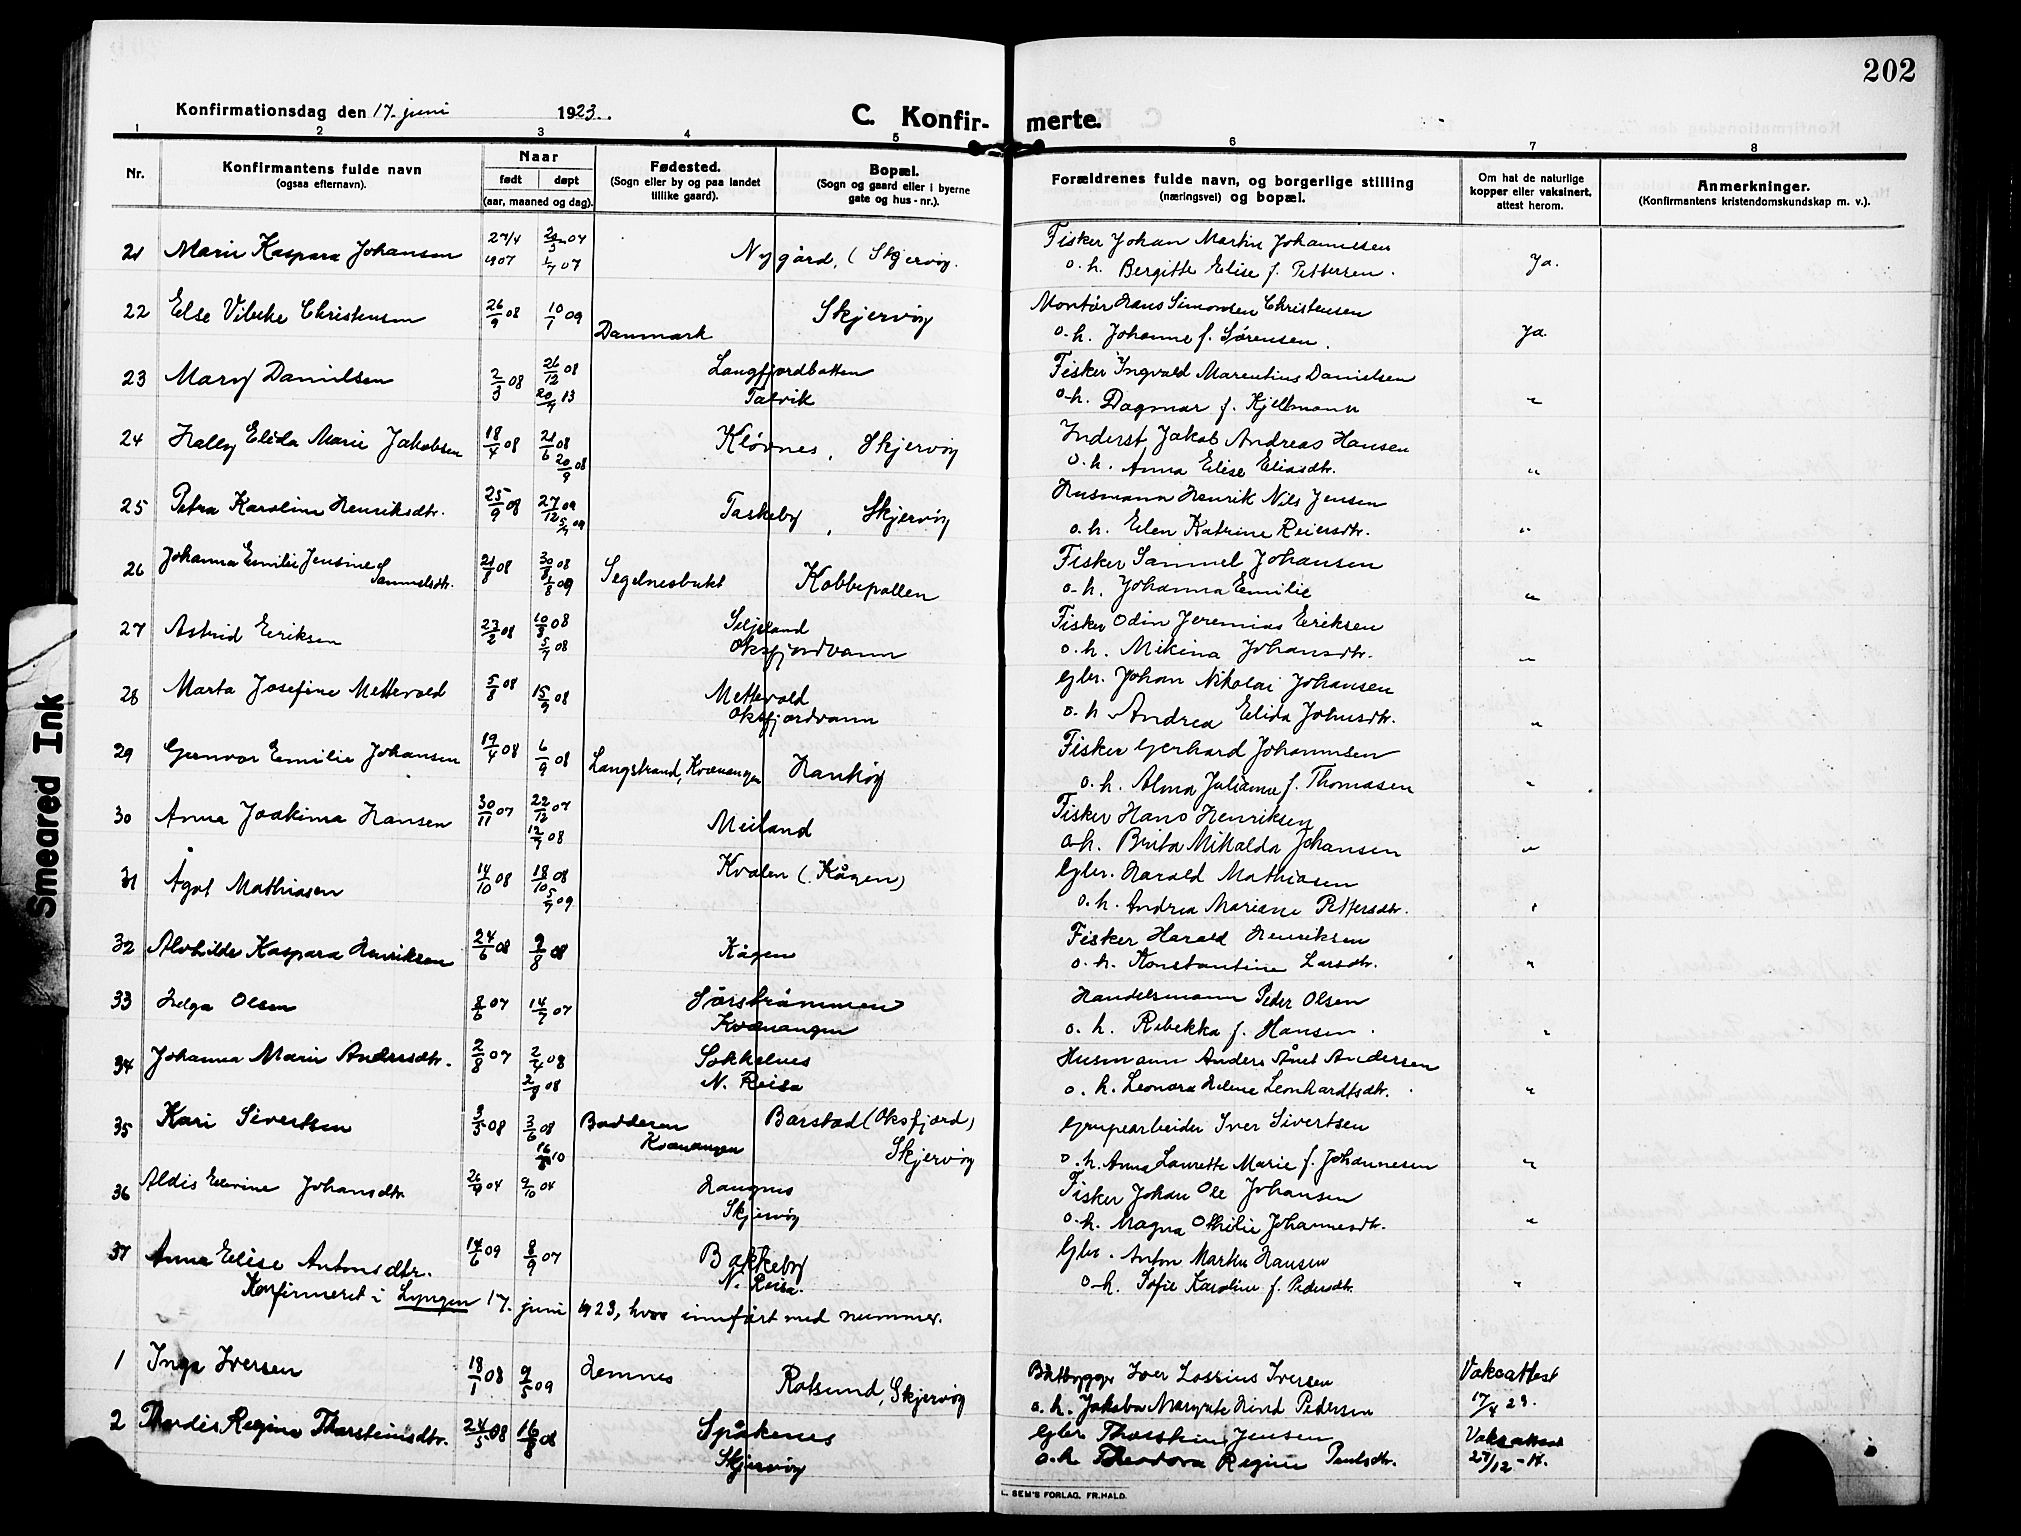 202
Konfirmationsdag den 17. juni 1923.
C. Konfir- merte.
1 2 3 4 5 6 7 8
Nr.
Konfirmantens fulde navn
(ogsaa efternavn).
Naar
født døpt
(aar, maaned og dag).
Fødested.
(Sogn eller by og paa landet
tillike gaard).
Bopæl.
(Sogn og gaard eller i byerne
gate og hus-nr.).
Forældrenes fulde navn, og borgerlige stilling
(næringsvei) og bopæl.
Om hat de naturlige
kopper eller vaksinert,
attest herom.
Anmerkninger.
(Konfirmantens kristendomskundskap m. v.).
21 Marie Kaspara Johansen 27/4 1907 1/7 07 Nygård, (Skjervøy. Fisker Johan Martin Johannesen
o. h. Bergitte Elise f. Pettersen. Ja.
22 Else Vibeke Christensen 26/9 08 10/1 09 Danmark Skjervøy Montør Hans Simonsen Christensen
o. h. Johanne f. Sørensen. Ja.
23 Mary Danielsen 2/3 08 26/12 08 Langfjordbotten Fisker Ingvald Marentius Danielsen
20/9 13 Talvik o. h. Dagmar f. Kjellmann "
24 Hally Elida Marie Jakobsen 18/4 08 21/6 08 Kløvnes, Skjervøy Inderst Jakob Andreas Hansen
20/9 08 o. h. Anna Elise Eliasdtr. "
25 Petra Karoline Henriksdtr. 25/9 08 27/12 09 Taskeby, Skjervøy Husmann Henrik Nils Jensen
o. h. Elen Katrine Reiersdtr. "
26 Johanna Emilie Jensine Samuelsdtr. 21/8 08 30/8 08 Segelnesbukt Kobbepollen Fisker Samuel Johansen
o. h. Johanna Emilie "
27 Astrid Eriksen 23/2 08 10/3 08 Seljeland Fisker Odin Jeremias Eriksen
5/7 08 Oksfjordvann o. h. Mikina Johansdtr. "
28 Marta Josefine Mettevold 5/8 08 15/9 08 Mettevold Gbr. Johan Nikolai Johansen
Oksfjordvann o. h. Andrea Elida Johnsdtr. "
29 Gunvor Emilie Johansen 19/4 08 6/9 08 Langstrand, Kvænangen Haukøy Fisker Gerhard Johannsen
o. h. Alma Julianne f. Thomasen "
30 Anna Joakima Hansen 30/11 07 22/12 07 Meiland Fisker Hans Henriksen
12/7 08 o. h. Berita Mikalda Johansen "
31 Ågot Mathiasen 14/10 08 18/10 08 Kvalen (Kågen) Gbr. Harald Mathiasen
5/9 09 o. h. Andrea Mariane Pettersdtr. "
32 Alvhilde Kaspara Henriksen 24/6 08 9/8 08 Kågen Fisker Harald Henriksen
o. h. Konstantine Larsdtr. "
33 Helga Olsen 8/6 07 14/7 07 Sørstrømmen Handelsmann Peder Olsen
Kvænangen o. h. Rebekka f. Hansen. "
34 Johanna Marie Andersdtr. 2/8 07 2/4 08 Sokkelnes Husmann Anders Anderson
2/8 08 N. Reisa o. h. Leonora Helene Leonhardtsdtr. "
35 Kari Sivertsen 3/5 08 3/6 08 Badderen Barstad (Oksfjord) Grupearbeider Iver Sivertsen
Kvænangen Skjervøy o. h. Anna Laurette Marie f. Johannesen "
36 Aldis Elverine Johansdtr 26/9 04 9/10 04 Haugnes Fisker Johan Ole Johansen
Skjervøy o. h. Magna Othilie Johannesdtr. "
37 Anna Elise Antonsdtr. 14/6 09 8/9 07 Bakkeby Gbr. Anton Martin Hansen
N. Reisa. o. h. Sofie Karoline f. Pedersdtr. "
Konfirmeret i Lyngen 17. juni 1923, hvor innført med nummer.
1 Inga Iversen 18/1 08 9/5 09 Hemnes Rotsund, Skjervøy Båtbygger Iver Iversen
o. h. Jakoba Margrete Lind Pedersen Vaksattest
17/4 23.
2 Thordis Regine Thorsteinsdtr. 24/5 08 16/8 08 Spåkenes Gbr Thorstein Jensen Vaksattest
Skjervøy o. h. Theodora Regine Paulsdtr. 27/12 -17.
SEM'S FORLAG, FR.HALD.
Smeared Ink